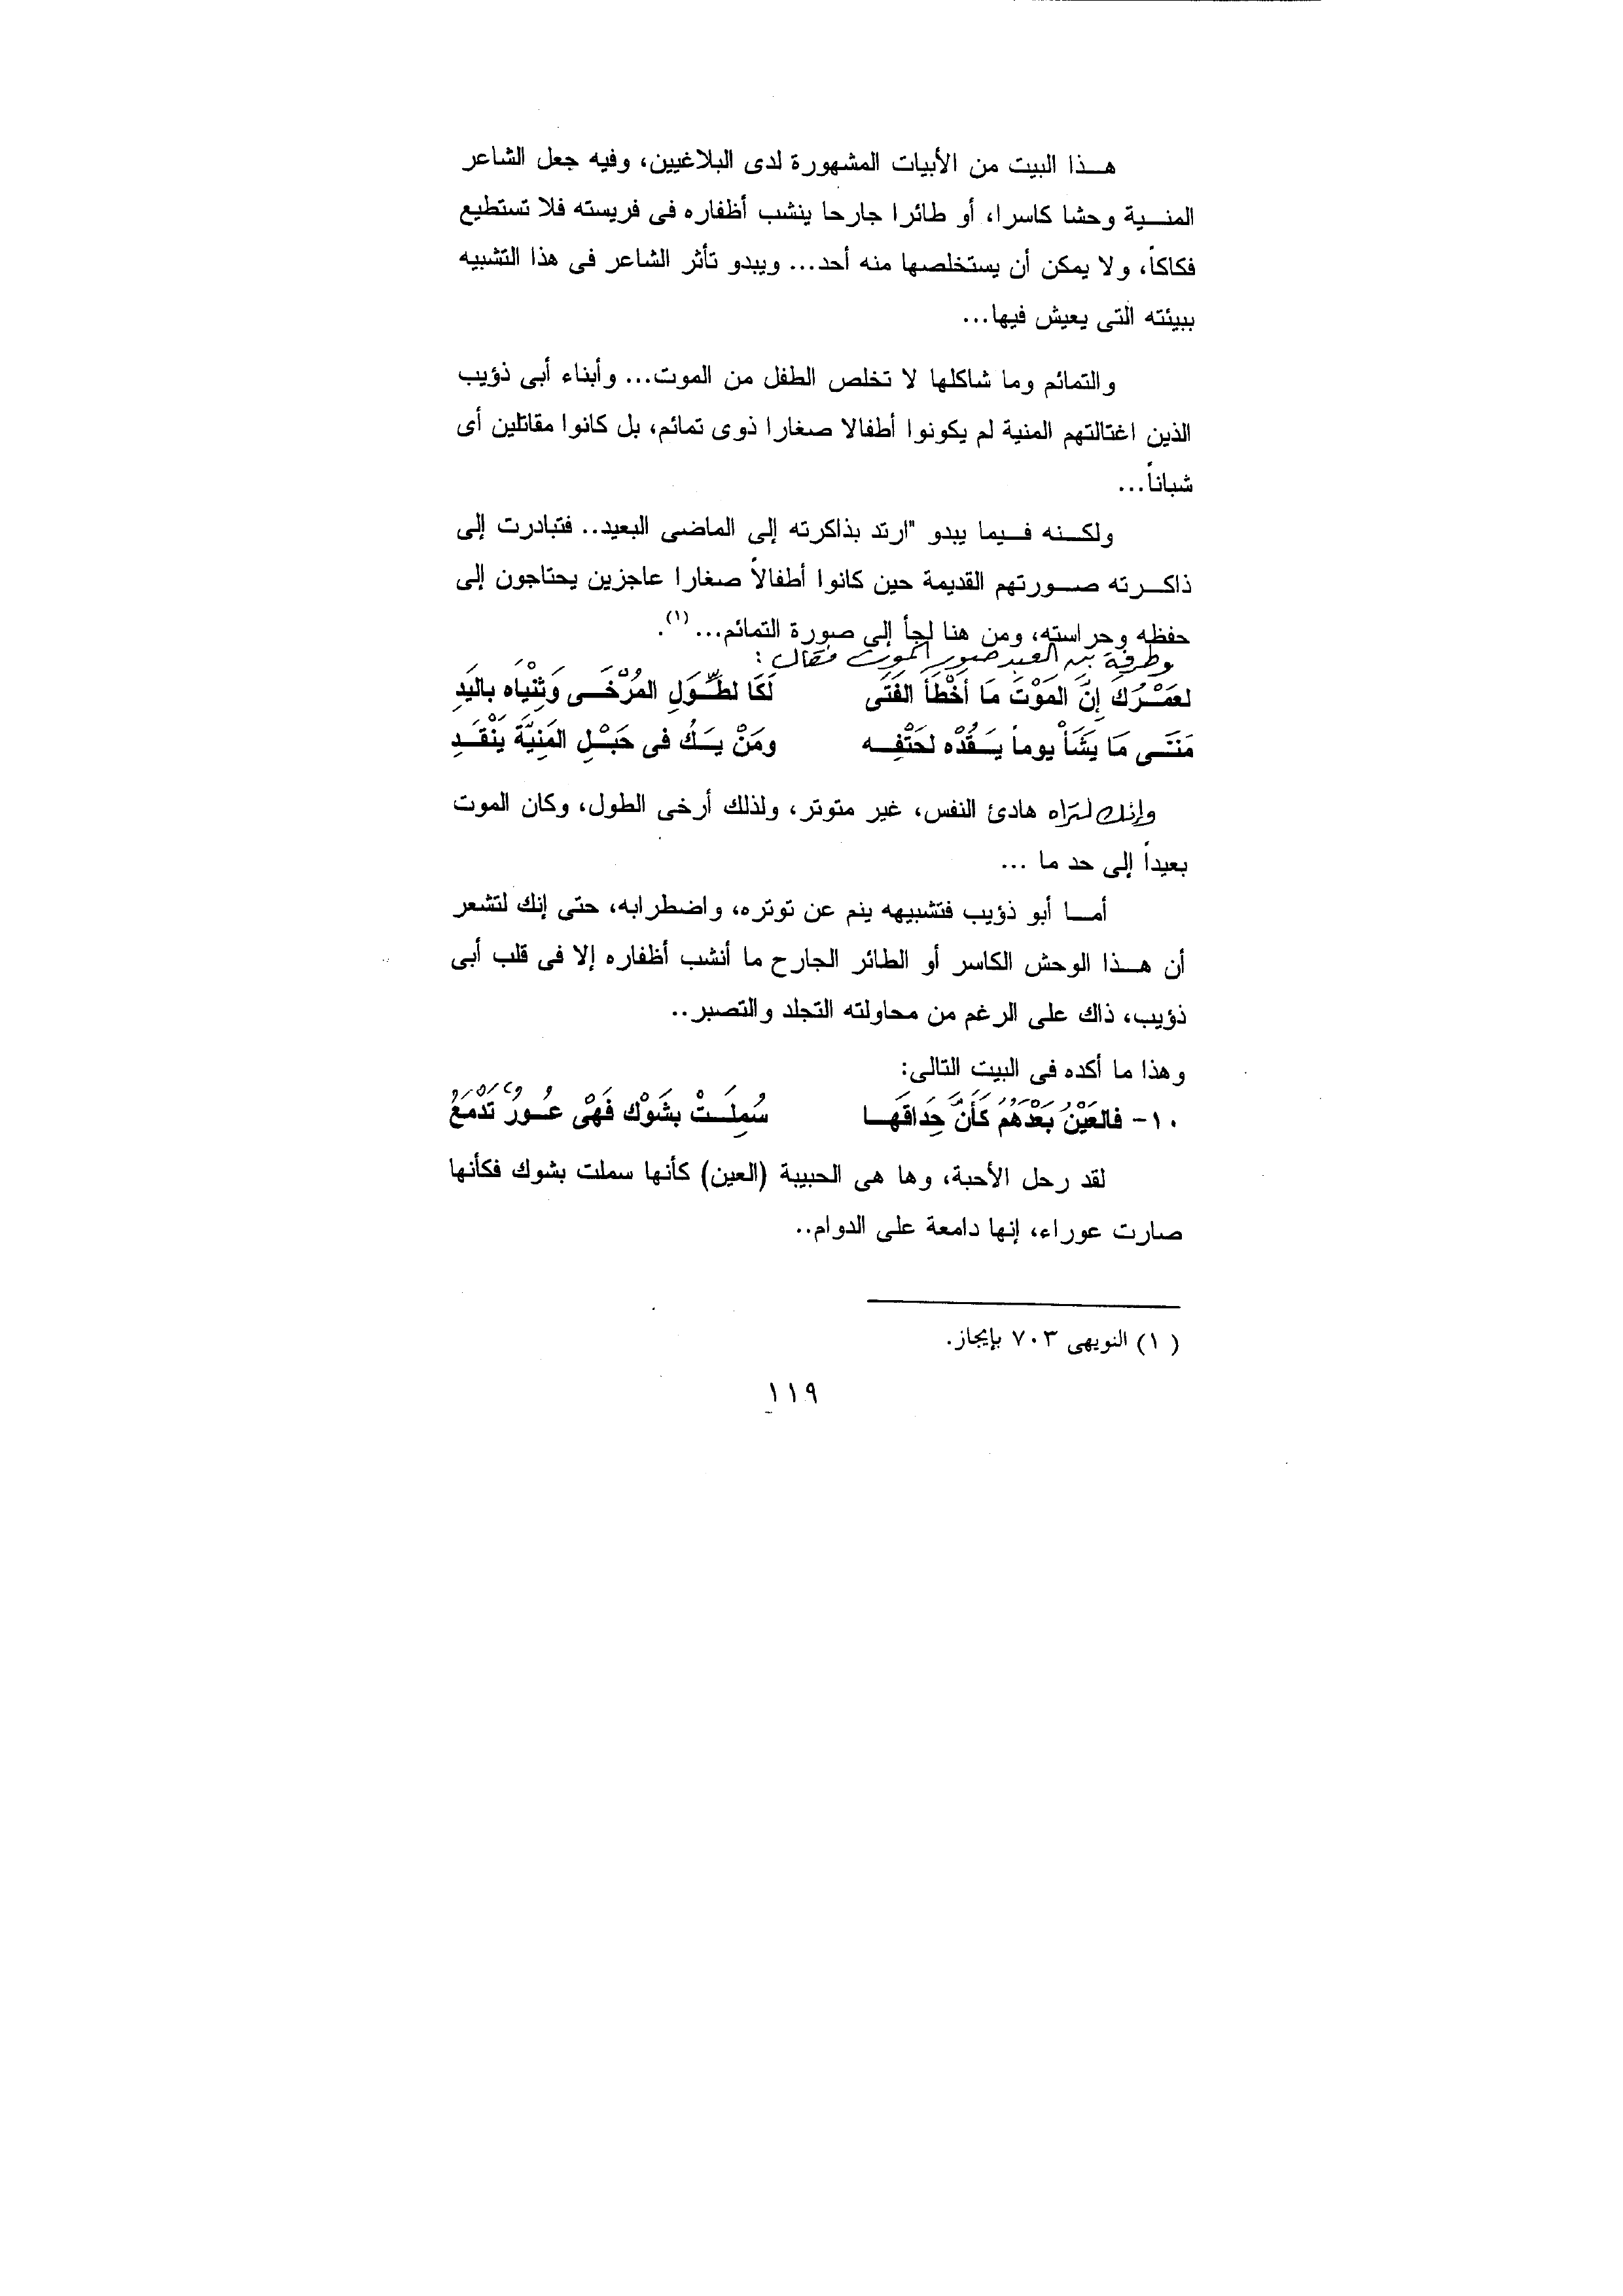 هذا البيت من الأبيات المشهورة لدى البلاغيين، وفيه جعل الشاعر
المنية وحشا كاسرا، أو طائرا جارحا ينشب أظفاره فى فريسته فلا تستطيع
فكاكاً، ولا يمكن أن يستخلصها منه أحد... ويبدو تأثر الشاعر فى هذا التشبيه
ببيئته التى يعيش فيها...
والتمائم وما شاكلها لا تخلص الطفل من الموت... وأبناء أبى ذؤيب
الذين اغتالتهم المنية لم يكونوا أطفالا صغارا ذوى تمائم، بل كانوا مقاتلين أى
شباناً...
ولكنه فيما يبدو "ارتد بذاكرته إلى الماضى البعيد.. فتبادرت إلى
ذاكرته صورتهم القديمة حين كانوا أطفالاً صغارا عاجزين يحتاجون إلى
حفظه وحراسته، ومن هنا لجأ إلى صورة التمائم...(١).
وطرفة بن العبد صور الموت فقال:
لعَمْرُكَ إنَّ المَوْتَ مَا أَخْطَأَ الفَتَى لَكَا لطِّوَلِ المُرْخَى وَثِنْيَاه باليَدِ
مَتَى مَا يَشَأْ يوماً يَقُدْه لحَتْفِه ومَنْ يَكُ فى حَبْلِ المَنِيَّة يَنْقَدِ
وإنك لتراه هادئ النفس، غير متوتر، ولذلك أرخى الطول، وكان الموت
بعيداً إلى حد ما ...
أما أبو ذؤيب فتشبيهه ينم عن توتره، واضطرابه، حتى إنك لتشعر
أن هذا الوحش الكاسر أو الطائر الجارح ما أنشب أظفاره إلا فى قلب أبى
ذؤيب، ذاك على الرغم من محاولته التجلد والتصبر..
وهذا ما أكده فى البيت التالى:
١٠- فالعَيْنُ بَعْدَهُمُ كَأَنَّ حِدَاقَهَا سُمِلَتْ بشَوْك فَهْىَ عُورٌ تَدْمَعُ
لقد رحل الأحبة، وها هى الحبيبة (العين) كأنها سملت بشوك فكأنها
صارت عوراء، إنها دامعة على الدوام..
(١) النويهى ٧٠٣ بإيجاز.
١١٩